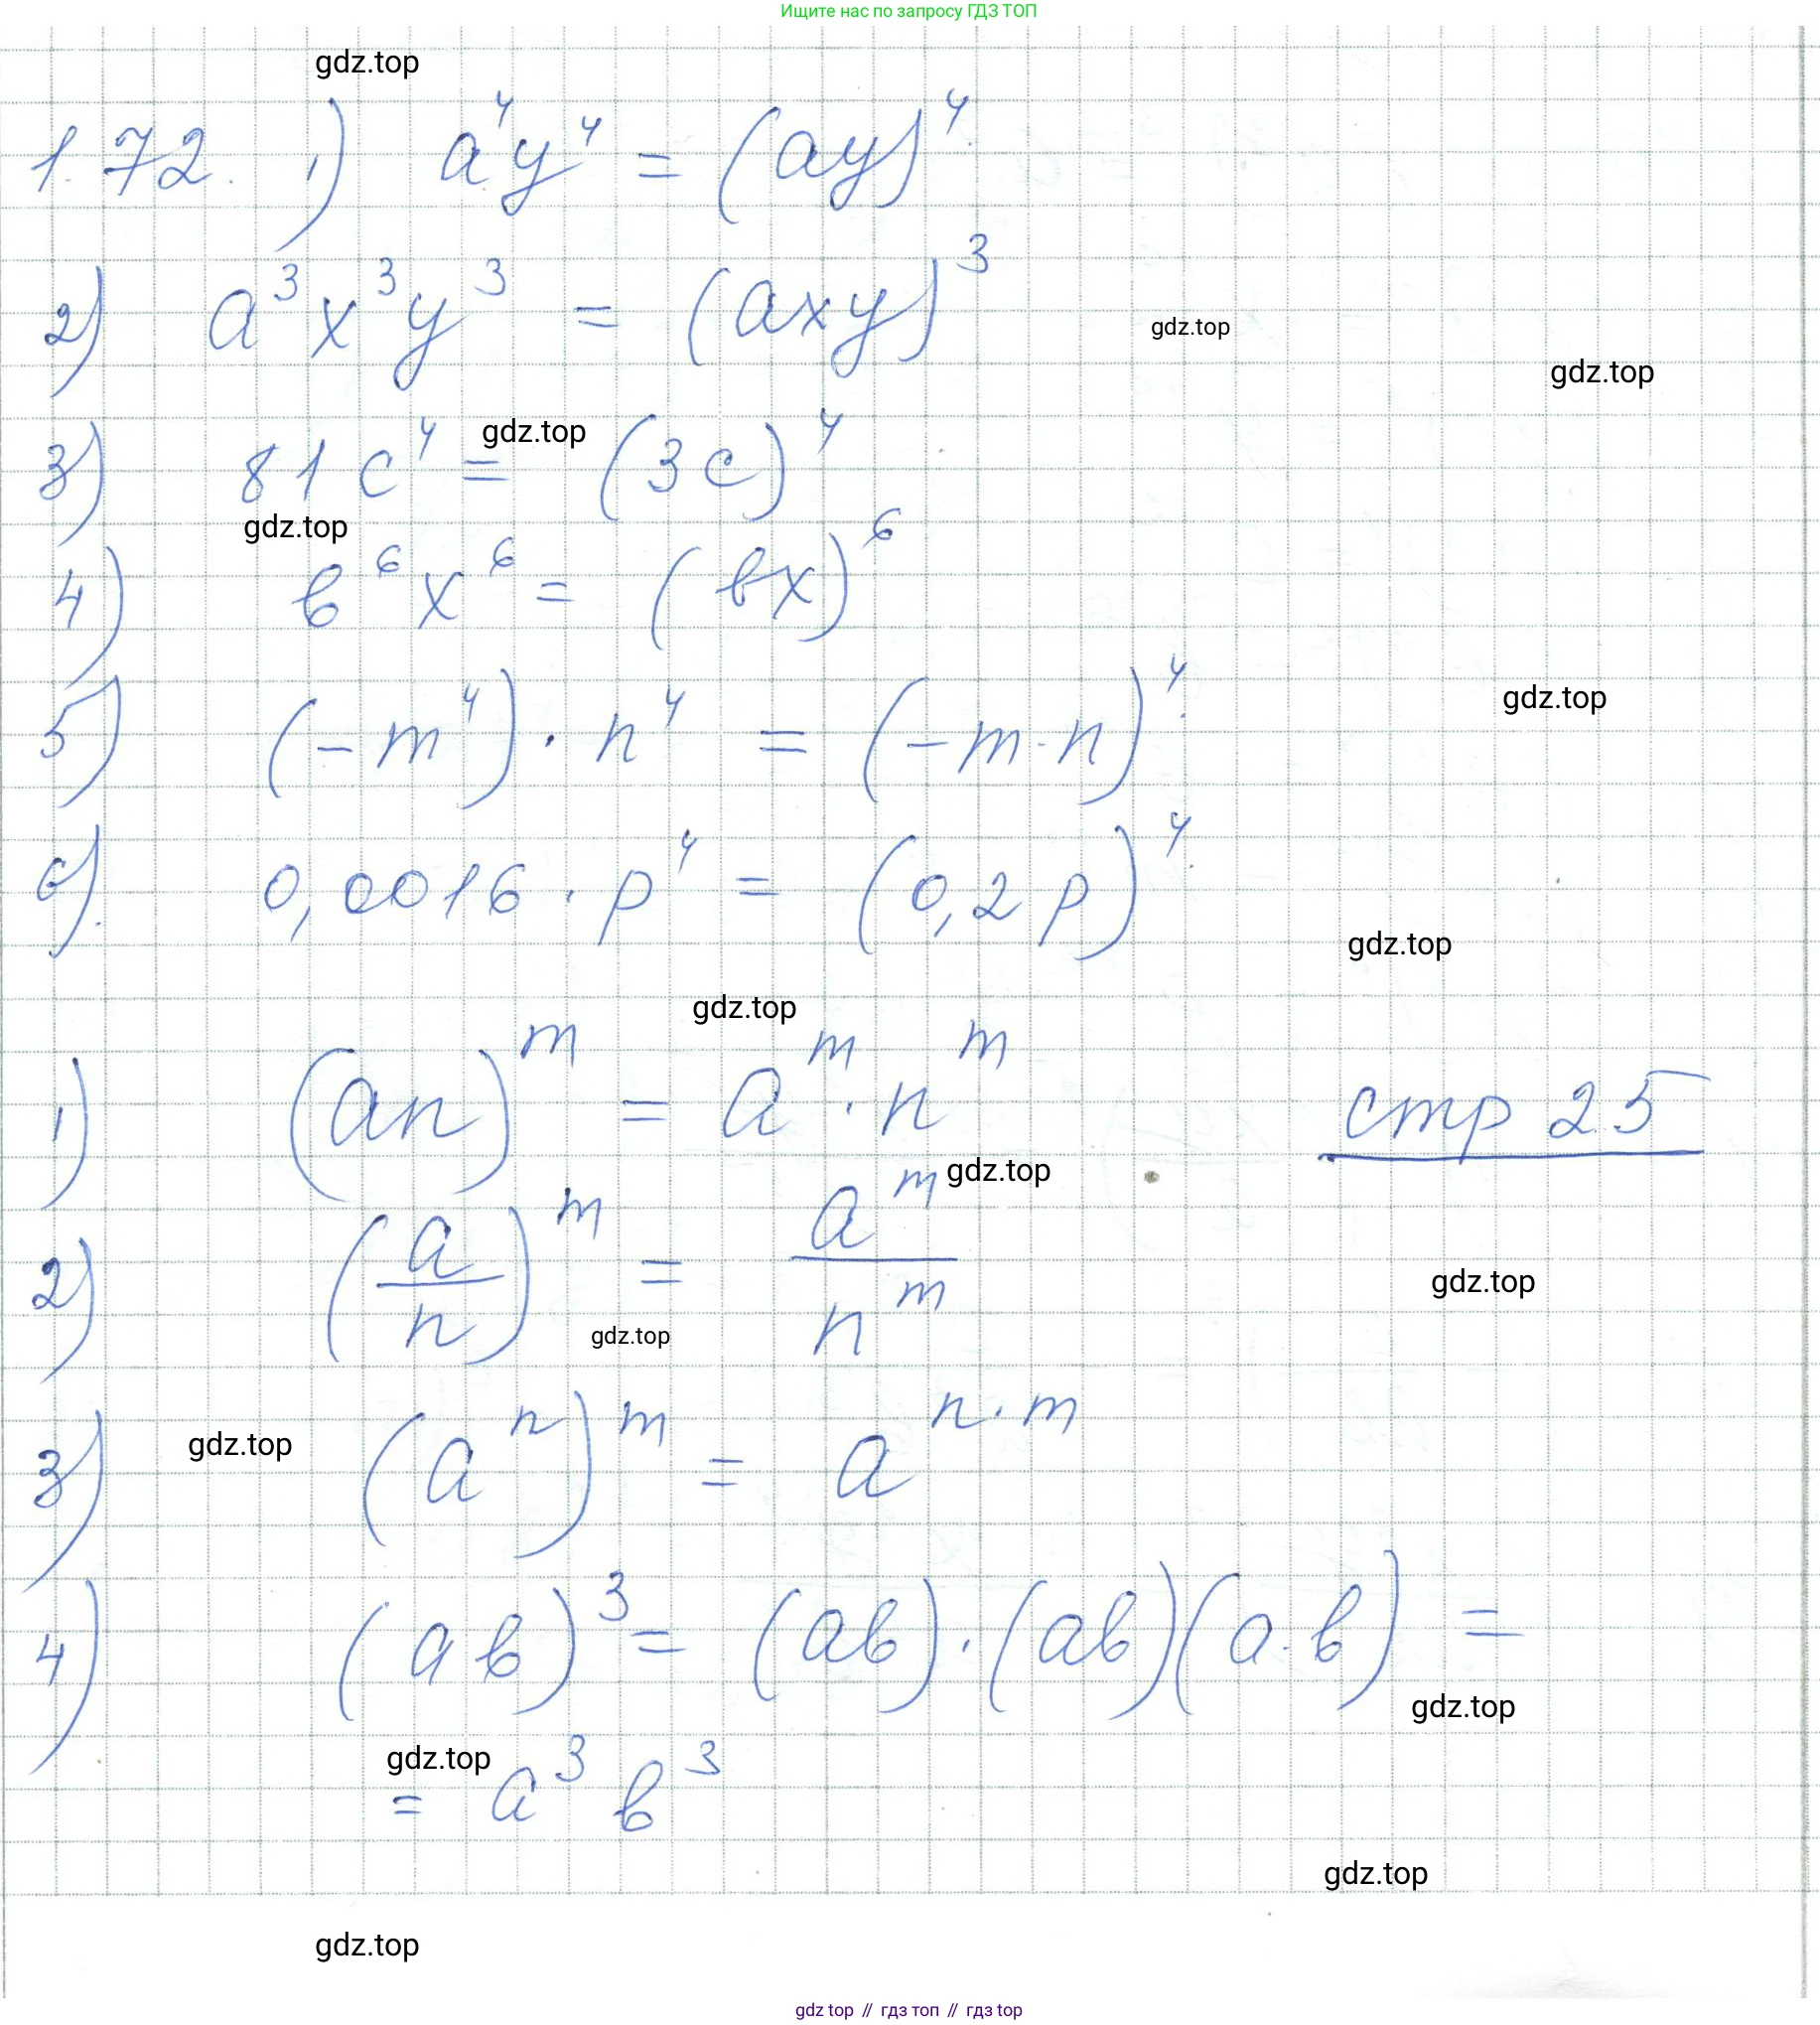 Ищите нас по запросу ГДЗ ТОП
gdz.top
1.72. 1) a⁴y⁴ = (ay)⁴.
2) a³x³y³ = (axy)³
gdz.top
gdz.top
3) 81c⁴ = (3c)⁴
gdz.top
gdz.top
4) в⁶x⁶ = (вx)⁶
5) (-m⁴) · n⁴ = (-m·n)⁴.
gdz.top
6). 0,0016 · p⁴ = (0,2p)⁴.
gdz.top
gdz.top
1) (an)ᵐ = aᵐ · nᵐ стр 25
gdz.top
2) (a/n)ᵐ = aᵐ/nᵐ
gdz.top
gdz.top
3) (aⁿ)ᵐ = aⁿ·ᵐ
gdz.top
4) (aв)³ = (aв)·(aв)(a·в) =
gdz.top
gdz.top
= a³ в³
gdz.top
gdz.top
gdz top // гдз топ // гдз top